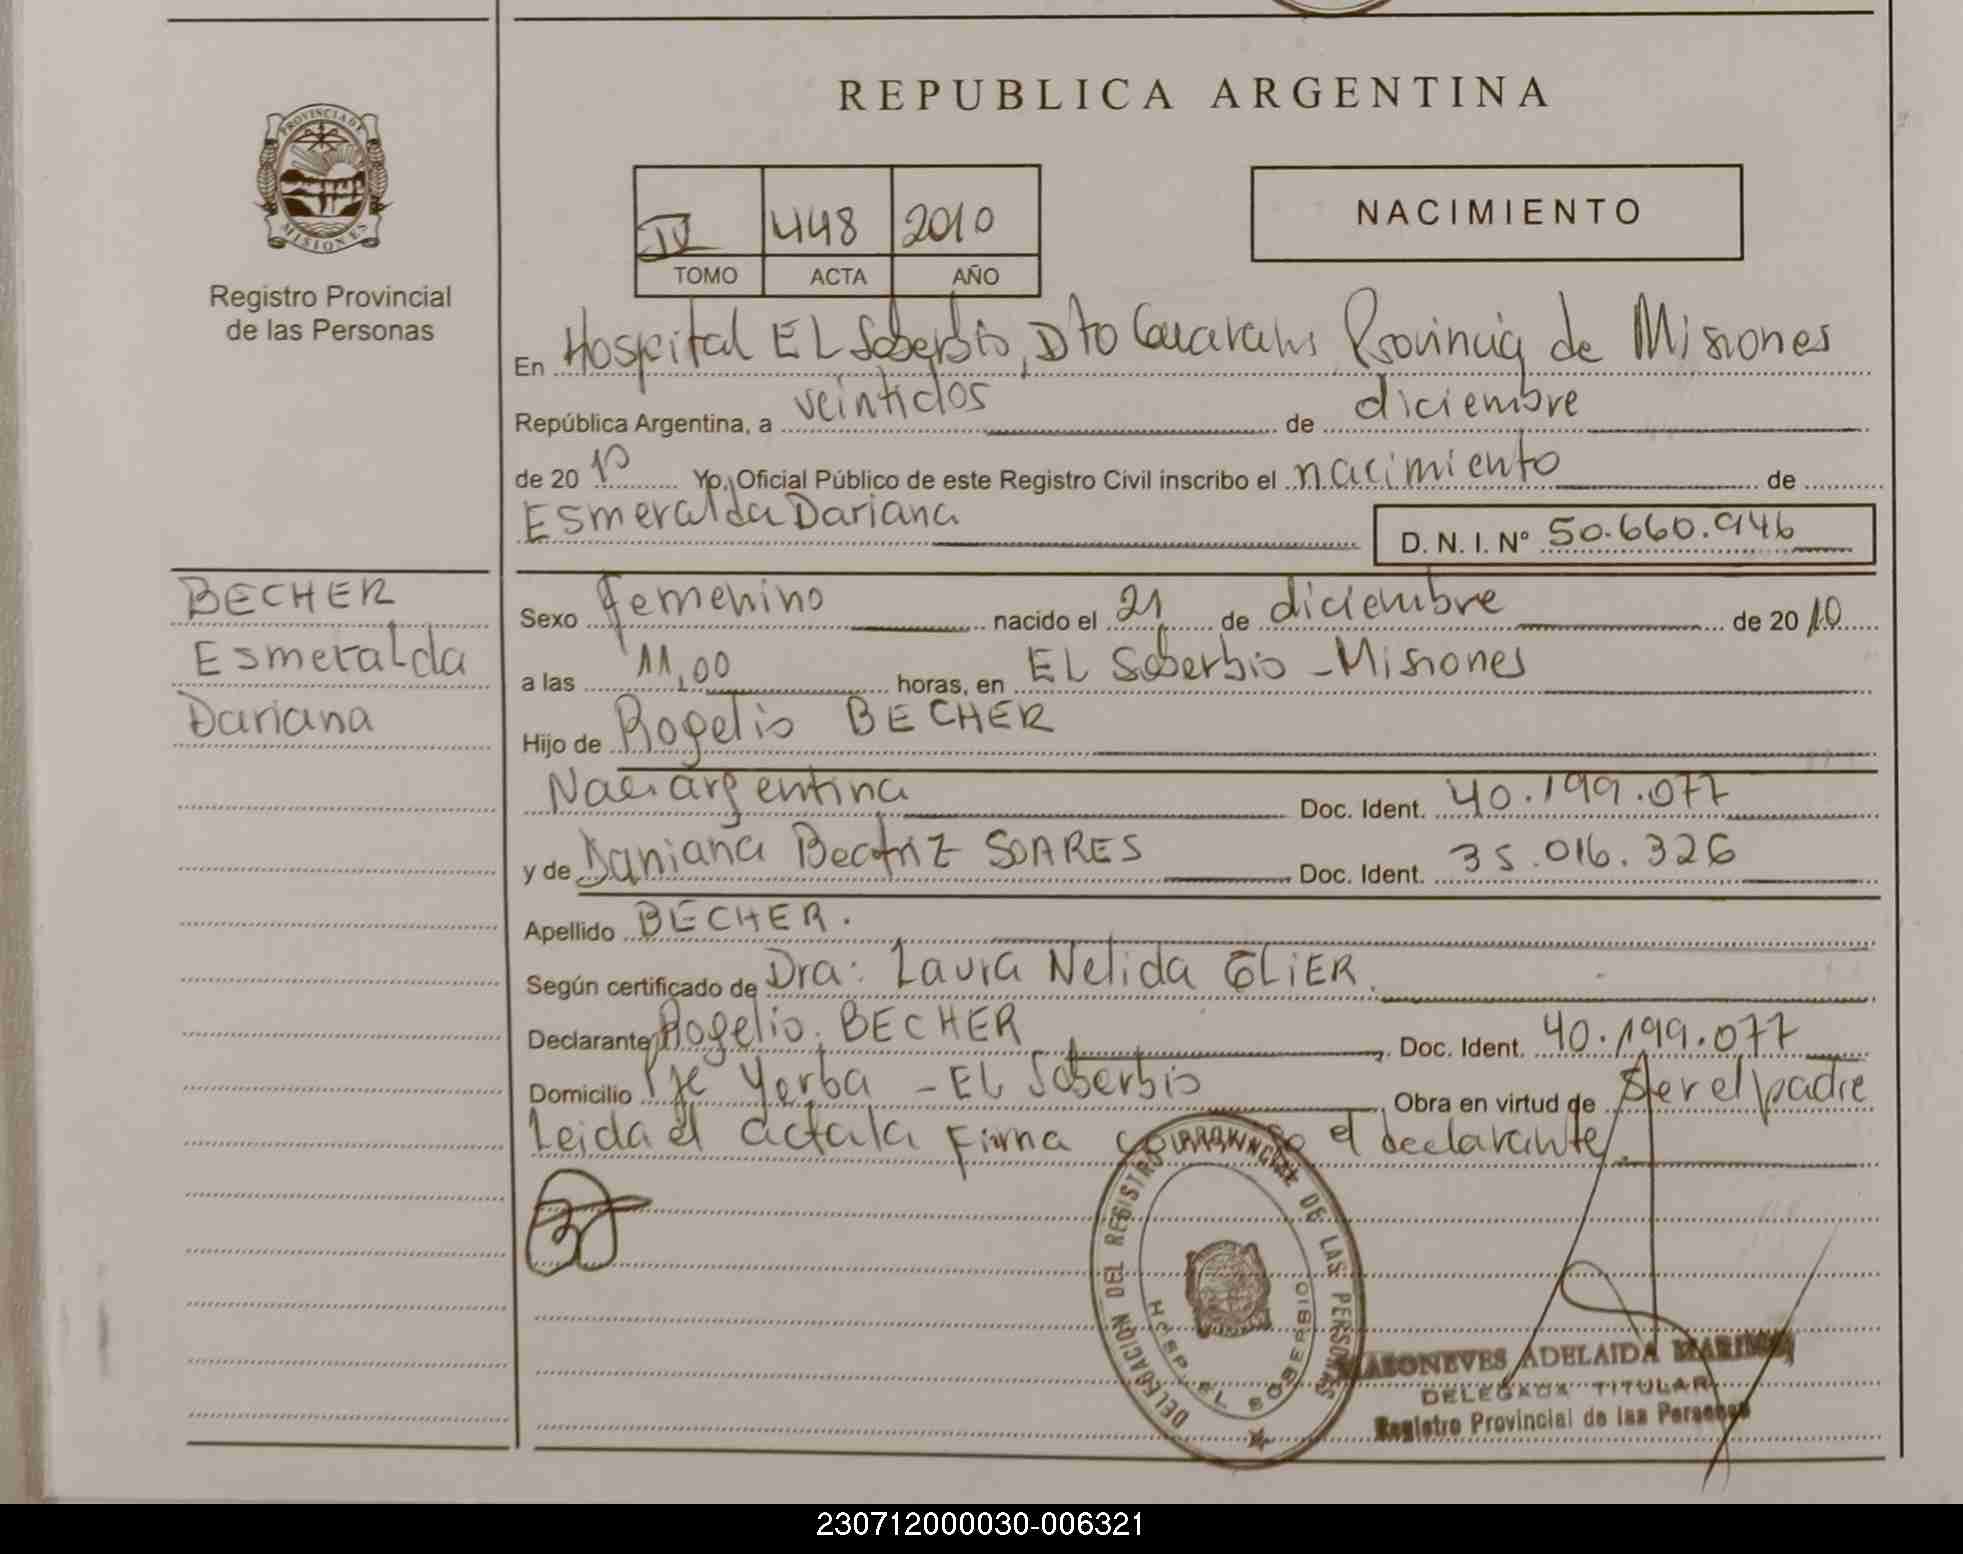 REPUBLICA ARGENTINA
PROVINCIA DE MISIONES
Registro Provincial
de las Personas
IV 448 2010
TOMO ACTA AÑO
NACIMIENTO
En Hospital EL Soberbio, Dto Guarani Provincia de Misiones
República Argentina, a veintidos de diciembre
de 2010 Yo, Oficial Público de este Registro Civil inscribo el nacimiento de
Esmeralda Dariana
D. N. I. Nº 50.660.946
BECHER
Esmeralda
Dariana
Sexo femenino nacido el 21 de diciembre de 2010
a las 11,00 horas, en EL Soberbio - Misiones
Hijo de Rogelio BECHER
Nac. argentina Doc. Ident. 40.199.077
y de Daniana Beatriz SOARES Doc. Ident. 35.016.326
Apellido BECHER.
Según certificado de Dra: Laura Nelida GLIER.
Declarante Rogelio. BECHER Doc. Ident. 40.199.077
Domicilio Pje Yerba - EL Soberbio Obra en virtud de ser el padre
Leida el acta la firma conmigo el declarante.
DELEGACION DEL REGISTRO PROVINCIAL DE LAS PERSONAS
HOSP. EL SOBERBIO
ADELAIDA
DELEGADA TITULAR
Registro Provincial de las Personas
230712000030-006321